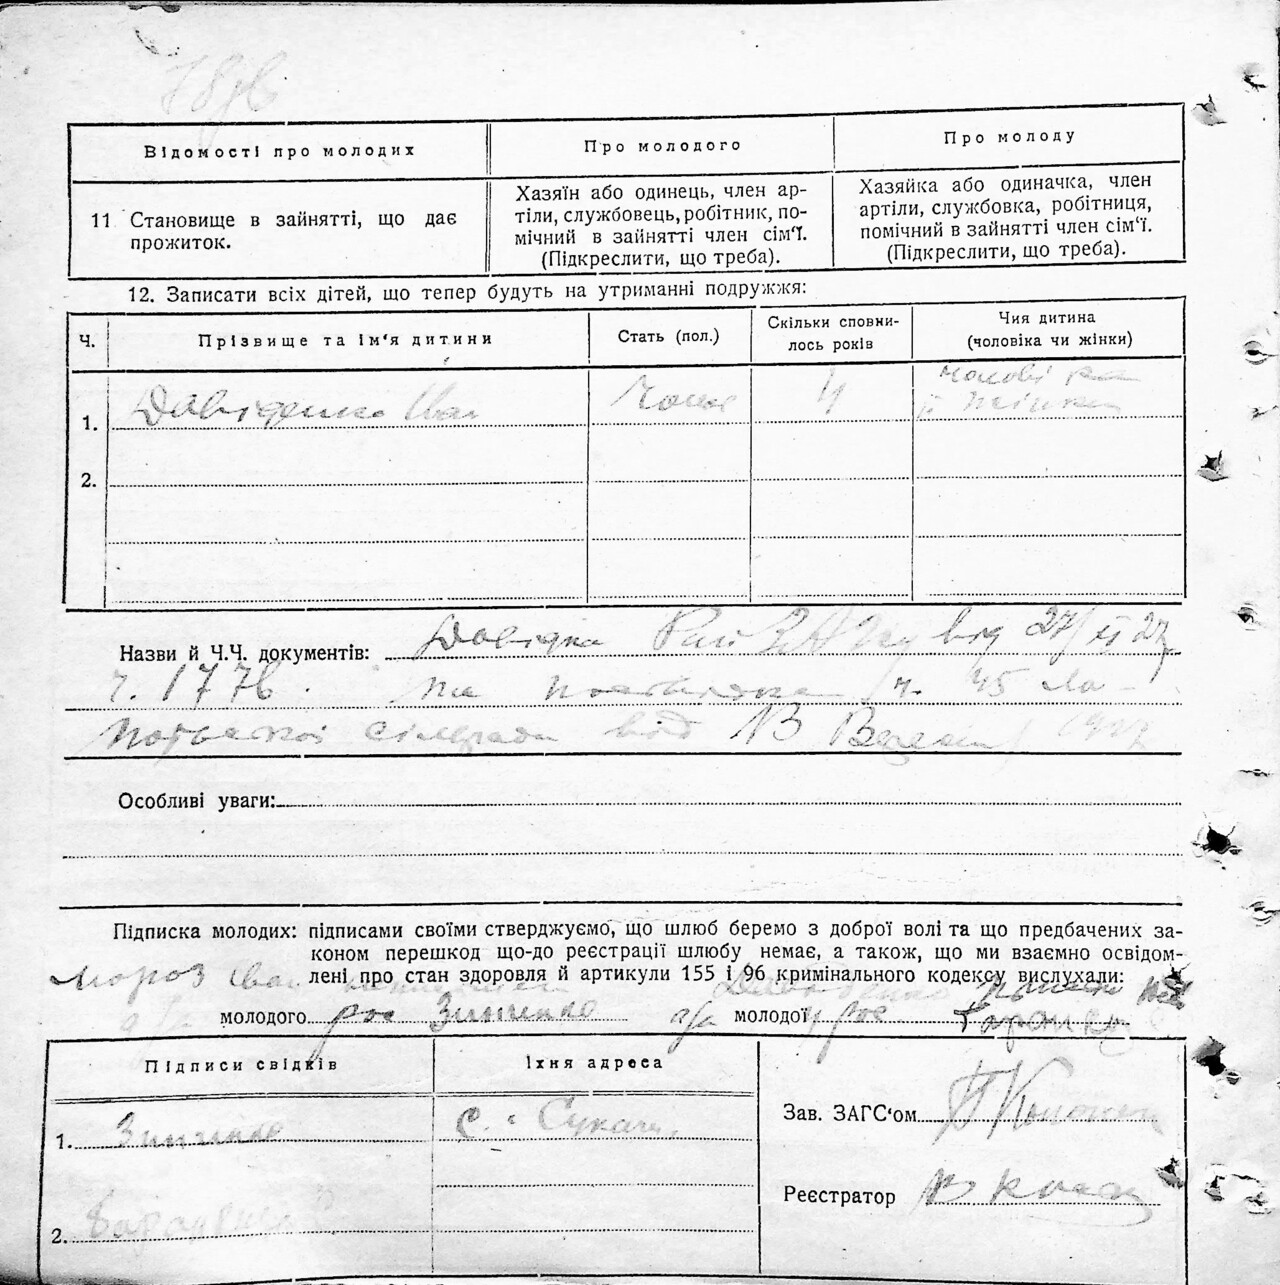 Відомості про молодих
Про молодого
Про молоду
11 Становище в зайнятті, що дає
прожиток.
Хазяїн або одинець, член ар-
тіли, службовець, робітник, по-
мічний в зайнятті член сім'ї.
(Підкреслити, що треба).
Хазяйка або одиначка, член
артіли, службовка, робітниця,
помічний в зайнятті член сім'ї.
(Підкреслити, що треба).
12. Записати всіх дітей, що тепер будуть на утриманні подружжя:
Ч.
Прізвище та ім'я дитини
Стать (пол.)
Скільки сповни-
лось років
Чия дитина
(чоловіка чи жінки)
1. Давіденко Іван
4
чоловіка
й жінки
2.
Назви й Ч.Ч. документів: Довідка від 27/ 27
ч. 1776. ч. 45
сільради від В 1927
Особливі уваги:
Підписка молодих: підписами своїми стверджуємо, що шлюб беремо з доброї волі та що предбачених за-
коном перешкод що-до реєстрації шлюбу немає, а також, що ми взаємно освідом-
Мороз Іван лені про стан здоровля й артикули 155 і 96 кримінального кодексу вислухали:
Давіденко
молодого рос Зинченко молодої рос
Підписи свідків
Їхня адреса
1. Зинченко
с.
2.
Зав. ЗАГС'ом
Реєстратор